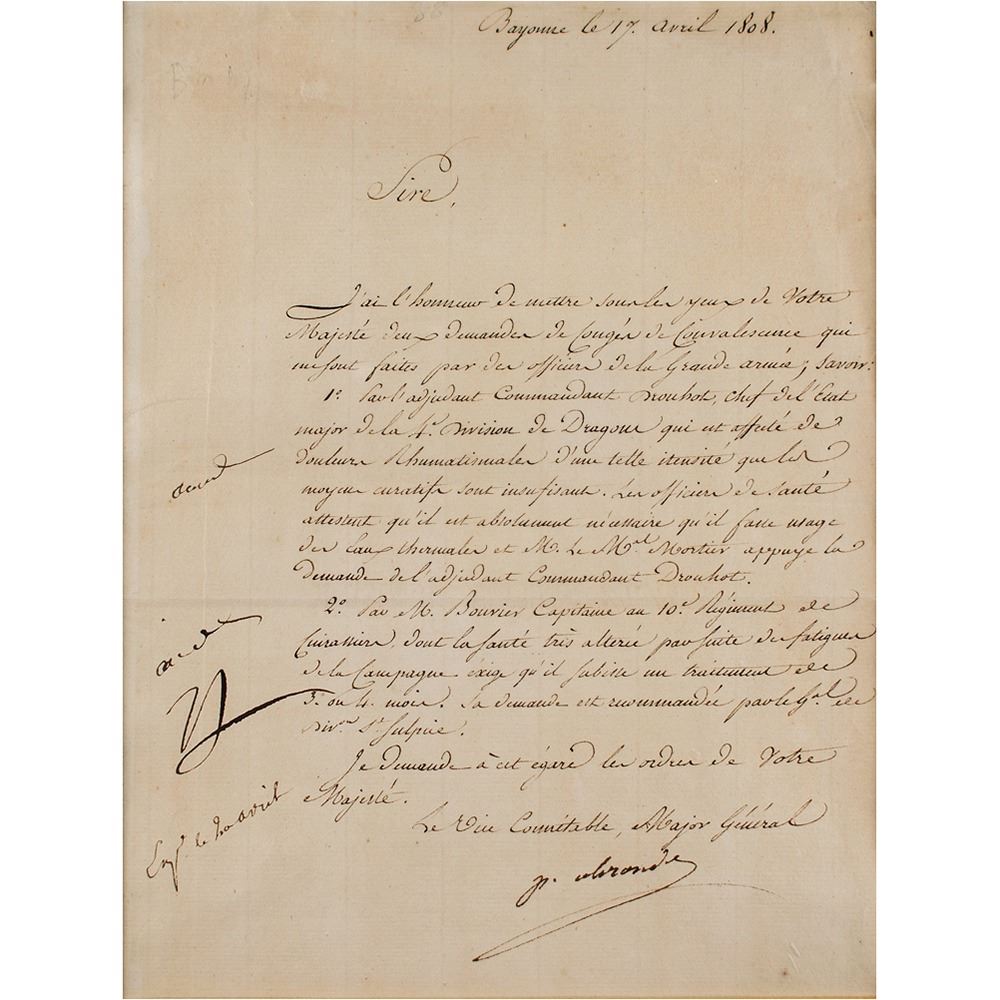 Bayonne le 17. avril 1808.
Sire,
J'ai l'honneur de mettre sous les yeux de Votre
Majesté deux demandes de Congés de Convalescence qui
me sont faites par des officiers de la Grande armée ; Savoir :
1° Par l'adjudant Commandant Drouhot, chef de l'Etat
major de la 4e Division de Dragons qui est affecté de
douleurs Rhumatismales d'une telle itensité que les
moyens curatifs sont insufisant. Les officiers de Santé
attestent qu'il est absolument nécessaire qu'il fasse usage
des Eaux thermales et M. Le Mal Mortier appuye la
demande de l'adjudant Commandant Drouhot.
2° Par M. Bouvier Capitaine au 10e Régiment de
Cuirassiers, dont la santé très alterée par suite des fatigues
de la Campagne éxige qu'il subisse un traitement de
3. ou 4. mois. Sa demande est recommandée par le Gal de
Divon St Sulpice.
Je demande à cet égard les ordres de Votre
Majesté.
Le Vice Connétable, Major Général
accordé
accordé
N
Expé le 20 avril